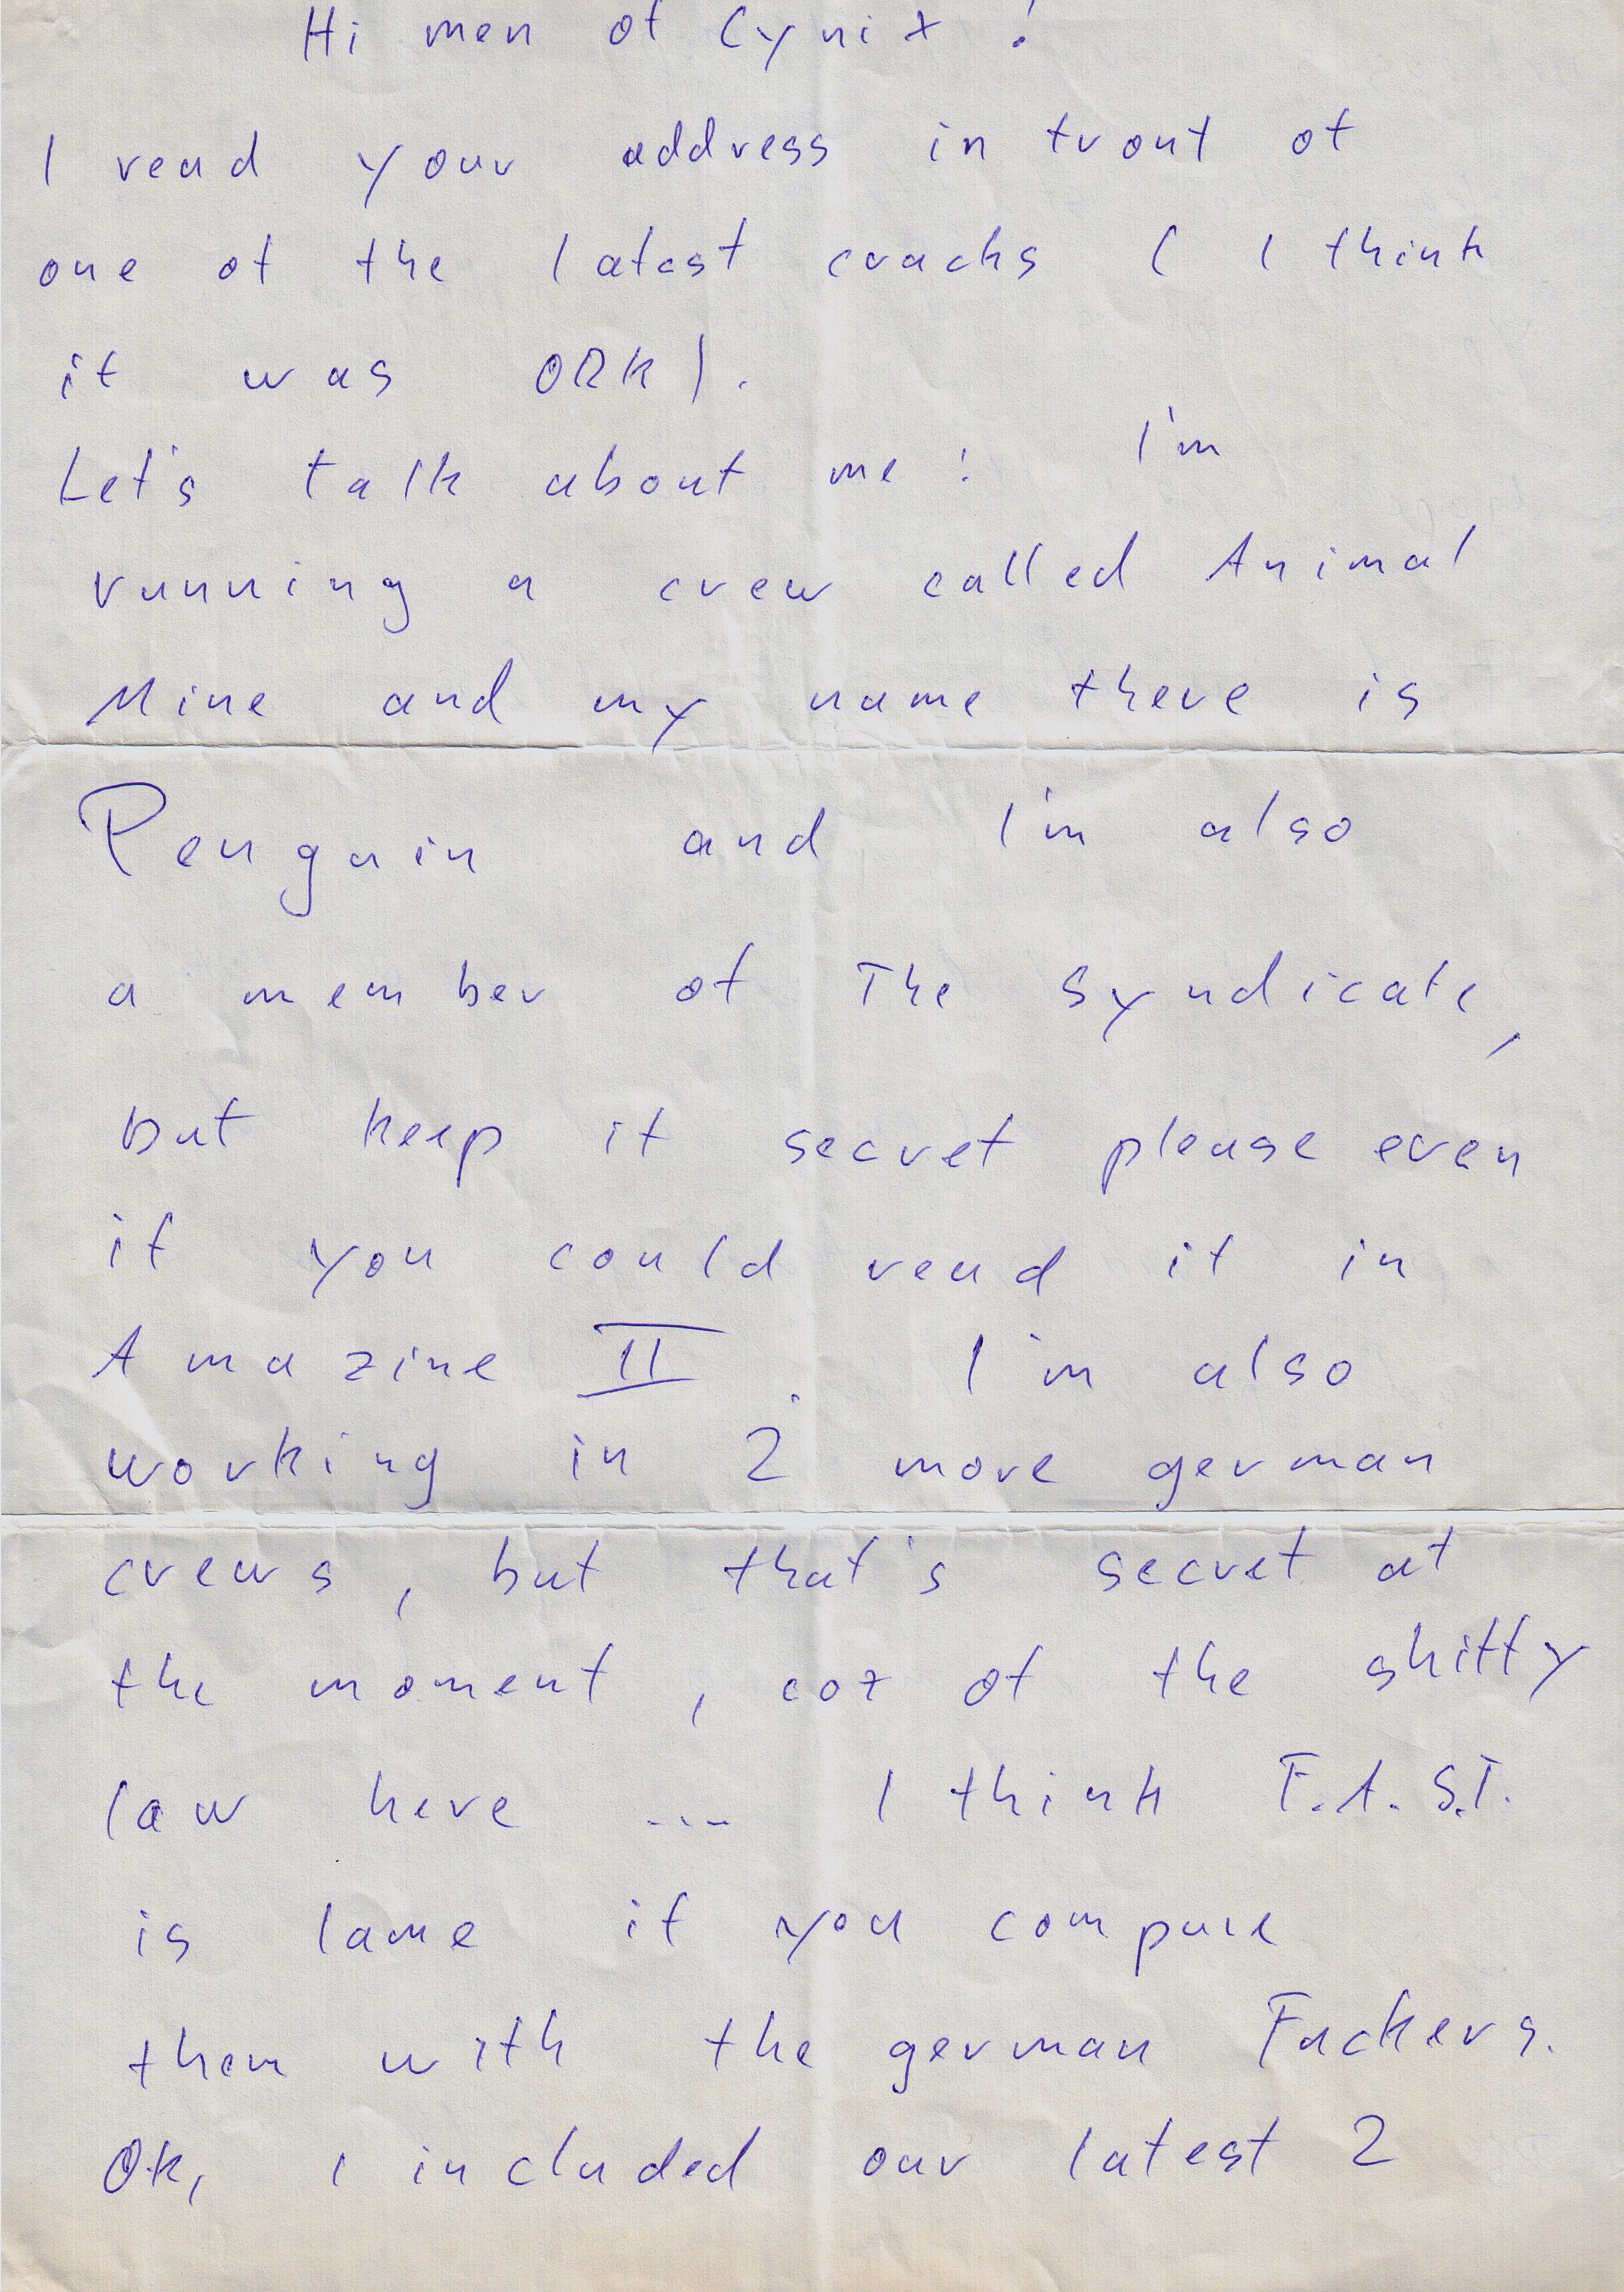 Hi men of Cynix !
I read your address in front of
one of the latest cracks ( I think
it was ORK ) .
Let's talk about me : I'm
running a crew called Animal
Mine and my name there is
Penguin and I'm also
a member of The Syndicate,
but keep it secret please even
if you could read it in
Amazine II . I'm also
working in 2 more german
crews , but that's secret at
the moment , coz of the shitty
law here ... I think F.A.S.T.
is lame if you compare
them with the german Fuckers.
Ok, I included our latest 2